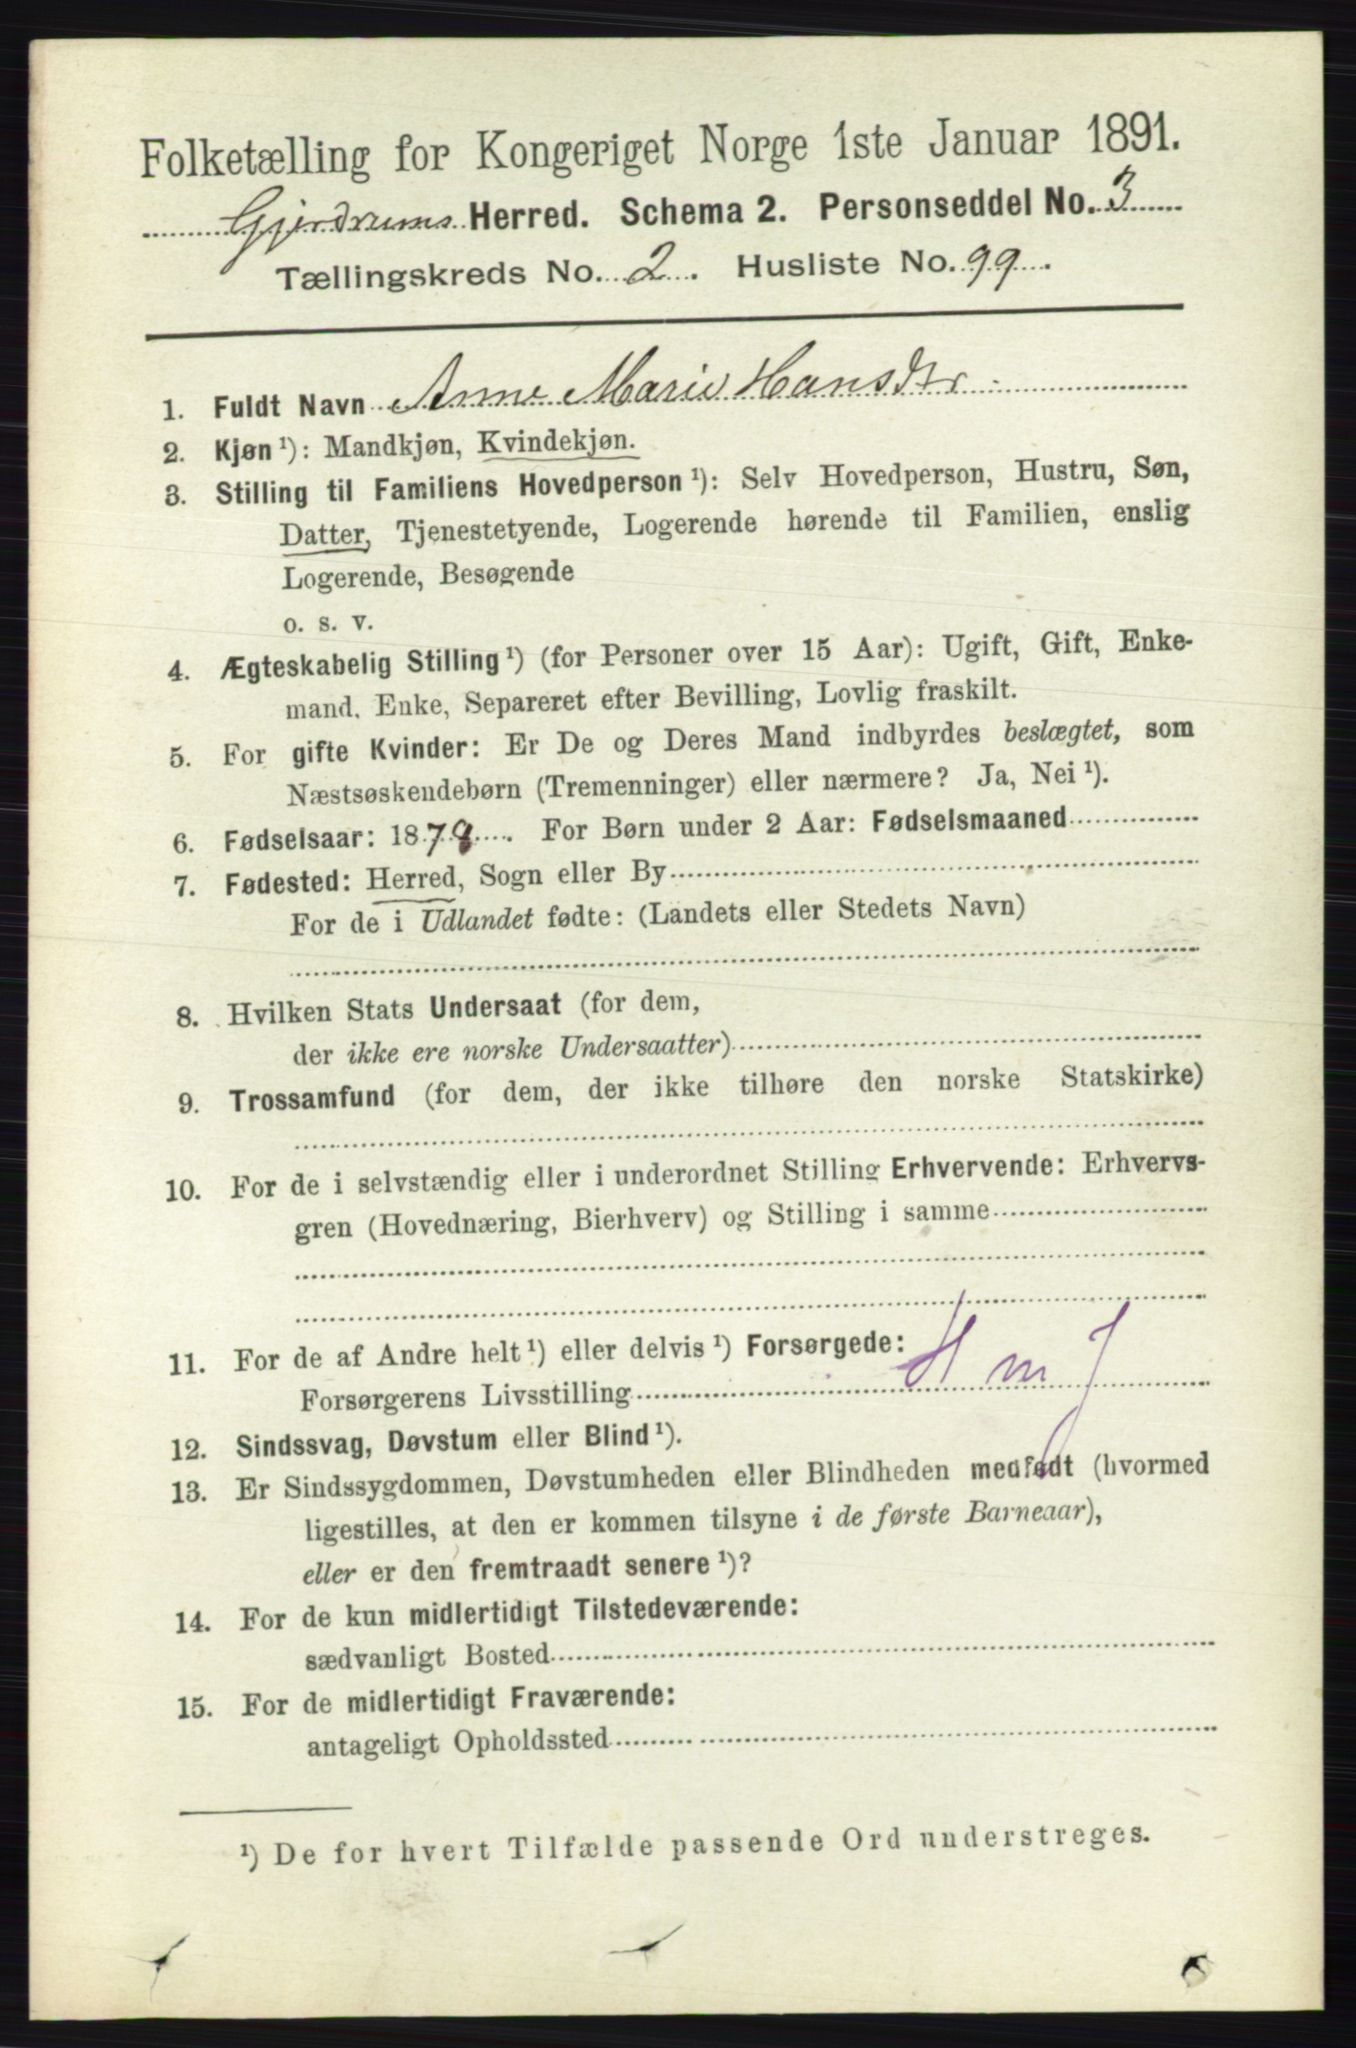 Folketælling for Kongeriget Norge 1ste Januar 1891.
Gjerdrums Herred. Schema 2. Personseddel No. 3
Tællingskreds No. 2. Husliste No. 99.
1. Fuldt Navn Anne Marie Hansdtr.
2. Kjøn ¹): Mandkjøn, Kvindekjøn.
3. Stilling til Familiens Hovedperson ¹): Selv Hovedperson, Hustru, Søn,
Datter, Tjenestetyende, Logerende hørende til Familien, enslig
Logerende, Besøgende
o. s. v.
4. Ægteskabelig Stilling ¹) (for Personer over 15 Aar): Ugift, Gift, Enke-
mand, Enke, Separeret efter Bevilling, Lovlig fraskilt.
5. For gifte Kvinder: Er De og Deres Mand indbyrdes beslægtet, som
Næstsøskendebørn (Tremenninger) eller nærmere? Ja, Nei ¹).
6. Fødselsaar: 1879. For Børn under 2 Aar: Fødselsmaaned
7. Fødested: Herred, Sogn eller By
For de i Udlandet fødte: (Landets eller Stedets Navn)
8. Hvilken Stats Undersaat (for dem,
der ikke ere norske Undersaatter)
9. Trossamfund (for dem, der ikke tilhøre den norske Statskirke)
10. For de i selvstændig eller i underordnet Stilling Erhvervende: Erhvervs-
gren (Hovednæring, Bierhverv) og Stilling i samme
11. For de af Andre helt ¹) eller delvis ¹) Forsørgede:
Forsørgerens Livsstilling H m J
12. Sindssvag, Døvstum eller Blind ¹).
13. Er Sindssygdommen, Døvstumheden eller Blindheden medfødt (hvormed
ligestilles, at den er kommen tilsyne i de første Barneaar),
eller er den fremtraadt senere ¹)?
14. For de kun midlertidigt Tilstedeværende:
sædvanligt Bosted
15. For de midlertidigt Fraværende:
antageligt Opholdssted
¹) De for hvert Tilfælde passende Ord understreges.